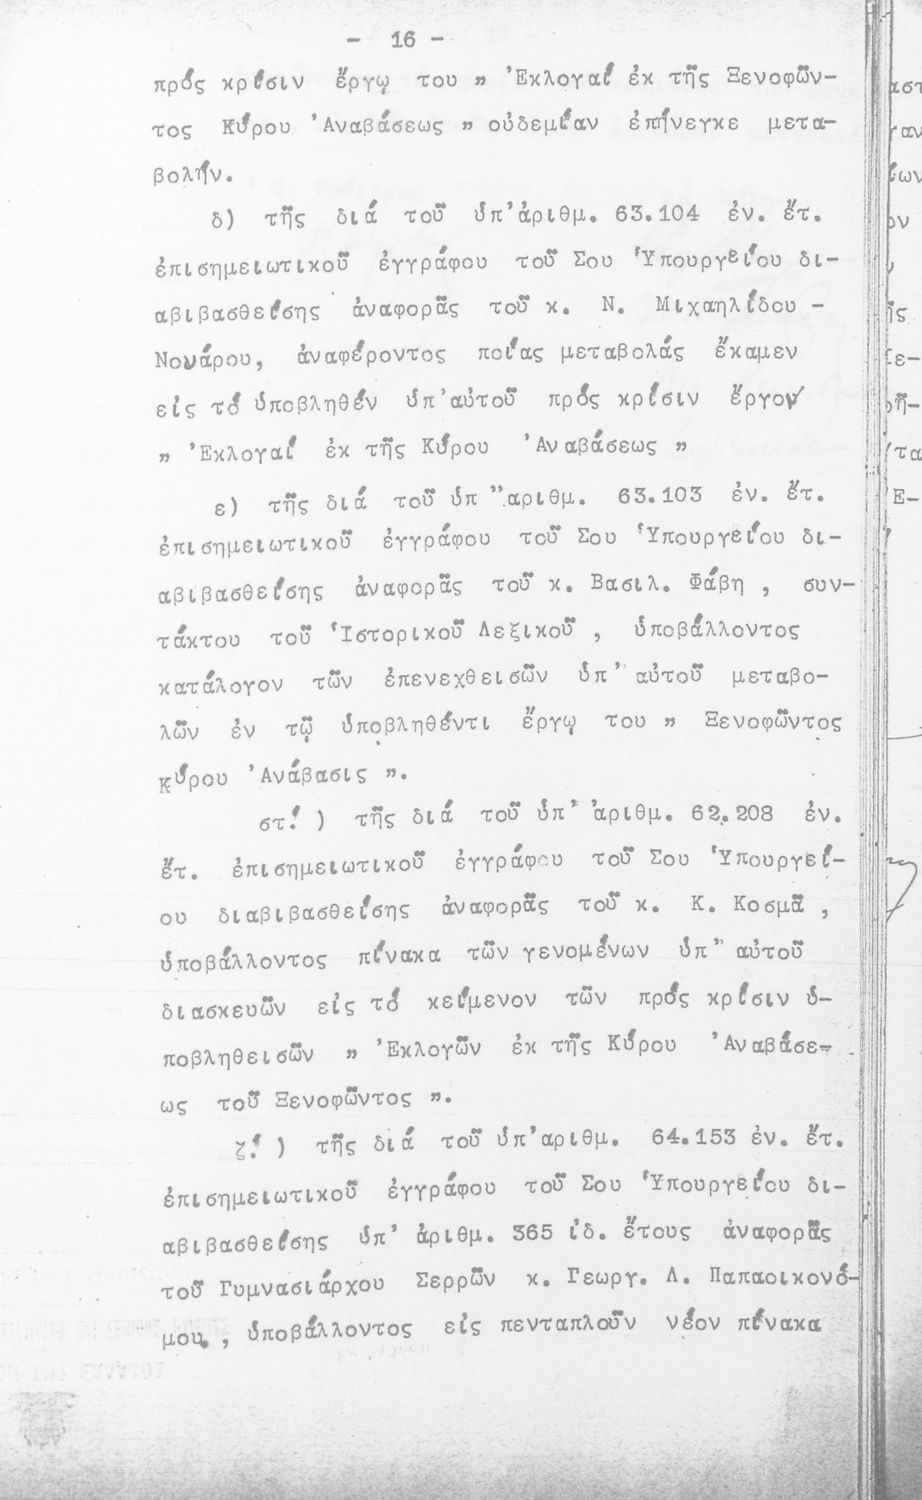 - 16 -
πρός κρίσιν ἔργῳ του „ Ἐκλογαί ἐκ τῆς Ξενοφῶν-
τος Κύρου Ἀναβάσεως „ οὐδεμίαν ἐπήνεγκε μετα-
βολήν.
δ) τῆς διά τοῦ ὑπ' ἀριθμ. 63.104 ἐν. ἔτ.
ἐπισημειωτικοῦ ἐγγράφου τοῦ Σου Ὑπουργείου δι-
αβιβασθείσης ἀναφορᾶς τοῦ κ. Ν. Μιχαηλίδου -
Νουάρου, ἀναφέροντος ποίας μεταβολάς ἔκαμεν
εἰς τό ὑποβληθέν ὑπ' αὐτοῦ πρός κρίσιν ἔργον
„ Ἐκλογαί ἐκ τῆς Κύρου Ἀναβάσεως „
ε) τῆς διά τοῦ ὑπ' ἀριθμ. 63.103 ἐν. ἔτ.
ἐπισημειωτικοῦ ἐγγράφου τοῦ Σου Ὑπουργείου δι-
αβιβασθείσης ἀναφορᾶς τοῦ κ. Βασιλ. Φάβη , συν-
τάκτου τοῦ Ἱστορικοῦ Λεξικοῦ , ὑποβάλλοντος
κατάλογον τῶν ἐπενεχθεισῶν ὑπ' αὐτοῦ μεταβο-
λῶν ἐν τῷ ὑποβληθέντι ἔργῳ του „ Ξενοφῶντος
Κύρου Ἀνάβασις „.
στ! ) τῆς διά τοῦ ὑπ' ἀριθμ. 62.208 ἐν.
ἔτ. ἐπισημειωτικοῦ ἐγγράφου τοῦ Σου Ὑπουργεί-
ου διαβιβασθείσης ἀναφορᾶς τοῦ κ. Κ. Κοσμᾶ ,
ὑποβάλλοντος πίνακα τῶν γενομένων ὑπ' αὐτοῦ
διασκευῶν εἰς τό κείμενον τῶν πρός κρίσιν ὑ-
ποβληθεισῶν „ Ἐκλογῶν ἐκ τῆς Κύρου Ἀναβάσε-
ως τοῦ Ξενοφῶντος „.
ζ! ) τῆς διά τοῦ ὑπ' ἀριθμ. 64.153 ἐν. ἔτ.
ἐπισημειωτικοῦ ἐγγράφου τοῦ Σου Ὑπουργείου δι-
αβιβασθείσης ὑπ' ἀριθμ. 365 ἰδ. ἔτους ἀναφορᾶς
τοῦ Γυμνασιάρχου Σερρῶν κ. Γεωργ. Λ. Παπαοικονό-
μου , ὑποβάλλοντος εἰς πενταπλοῦν νέον πίνακα